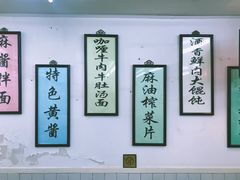 麻酱拌面
特色黄酱
咖喱牛肉牛肚汤面
麻油榨菜片
鲜肉大馄饨